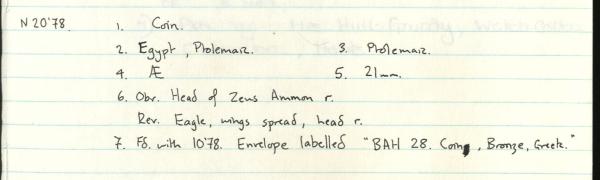 N 20'78. 1. Coin.
2. Egypt, Ptolemaic. 3. Ptolemaic.
4. Æ 5. 21mm.
6. Obv. Head of Zeus Ammon r.
Rev. Eagle, wings spread, head r.
7. Fd. with 10'78. Envelope labelled "BAH 28. Coin, Bronze, Greek."